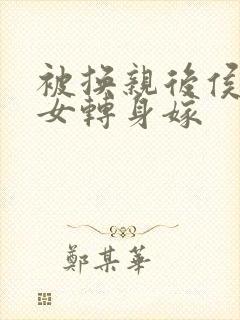 被换親後侯
女轉身嫁
鄭某華